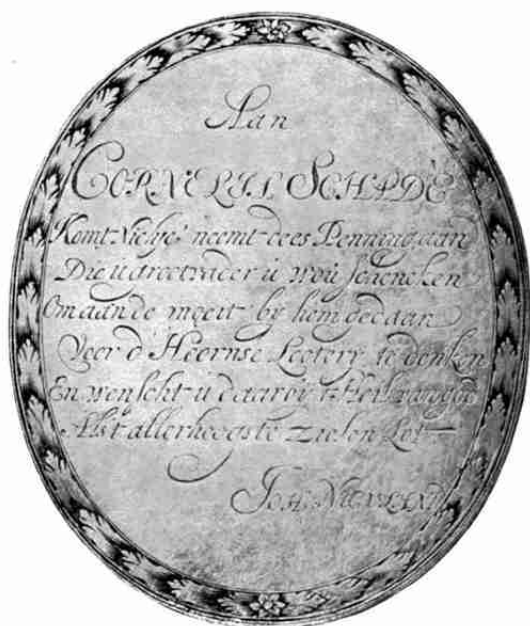 Aan
CORNELIS SCHADÉ
Komt Niesje neemt dees Penning aan
Die u grootvader u wou schencken
Om aan de moeit by hem gedaan
Voor d'Hoornse Lootery te denken
En wenscht u daar uit 't Heil van god
Als 't allerhoogste zielen Lot
JOH.